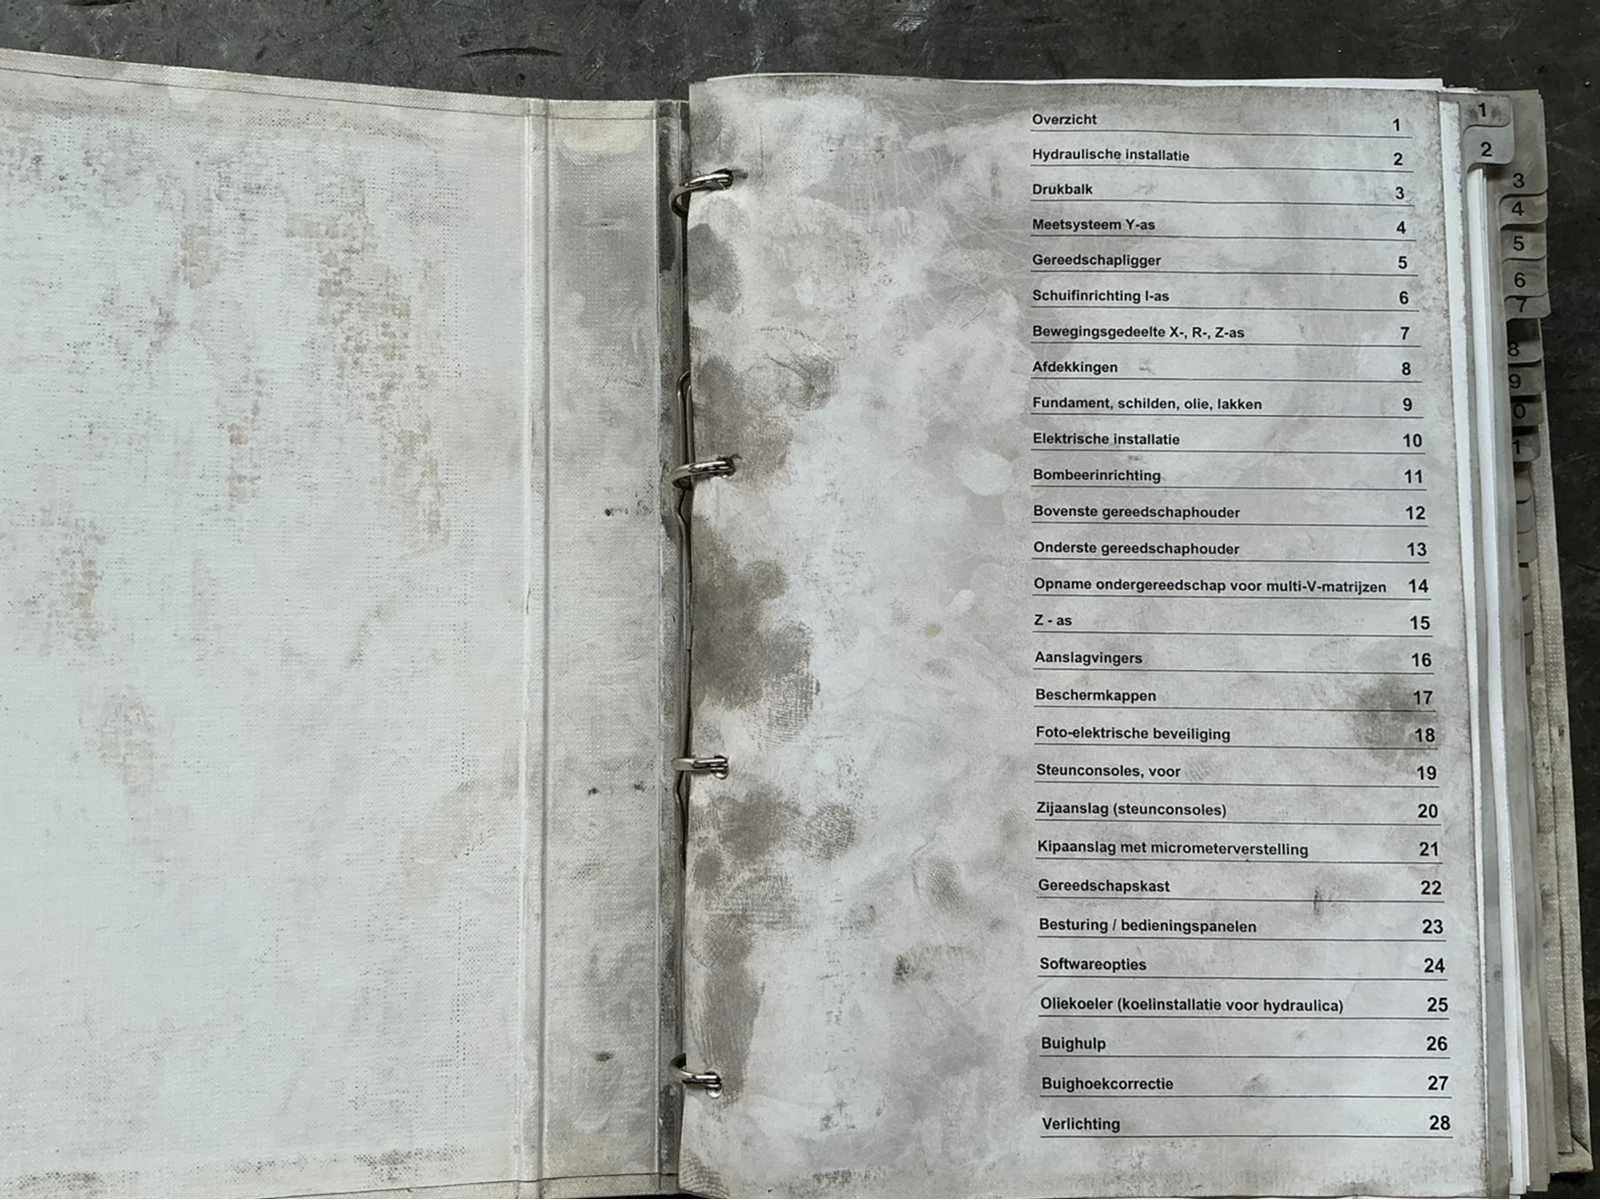 Overzicht 1
Hydraulische installatie 2
Drukbalk 3
Meetsysteem Y-as 4
Gereedschapligger 5
Schuifinrichting I-as 6
Bewegingsgedeelte X-, R-, Z-as 7
Afdekkingen 8
Fundament, schilden, olie, lakken 9
Elektrische installatie 10
Bombeerinrichting 11
Bovenste gereedschaphouder 12
Onderste gereedschaphouder 13
Opname ondergereedschap voor multi-V-matrijzen 14
Z - as 15
Aanslagvingers 16
Beschermkappen 17
Foto-elektrische beveiliging 18
Steunconsoles, voor 19
Zijaanslag (steunconsoles) 20
Kipaanslag met micrometerverstelling 21
Gereedschapskast 22
Besturing / bedieningspanelen 23
Softwareopties 24
Oliekoeler (koelinstallatie voor hydraulica) 25
Buighulp 26
Buighoekcorrectie 27
Verlichting 28
1
2
3
4
5
6
7
8
9
0
1